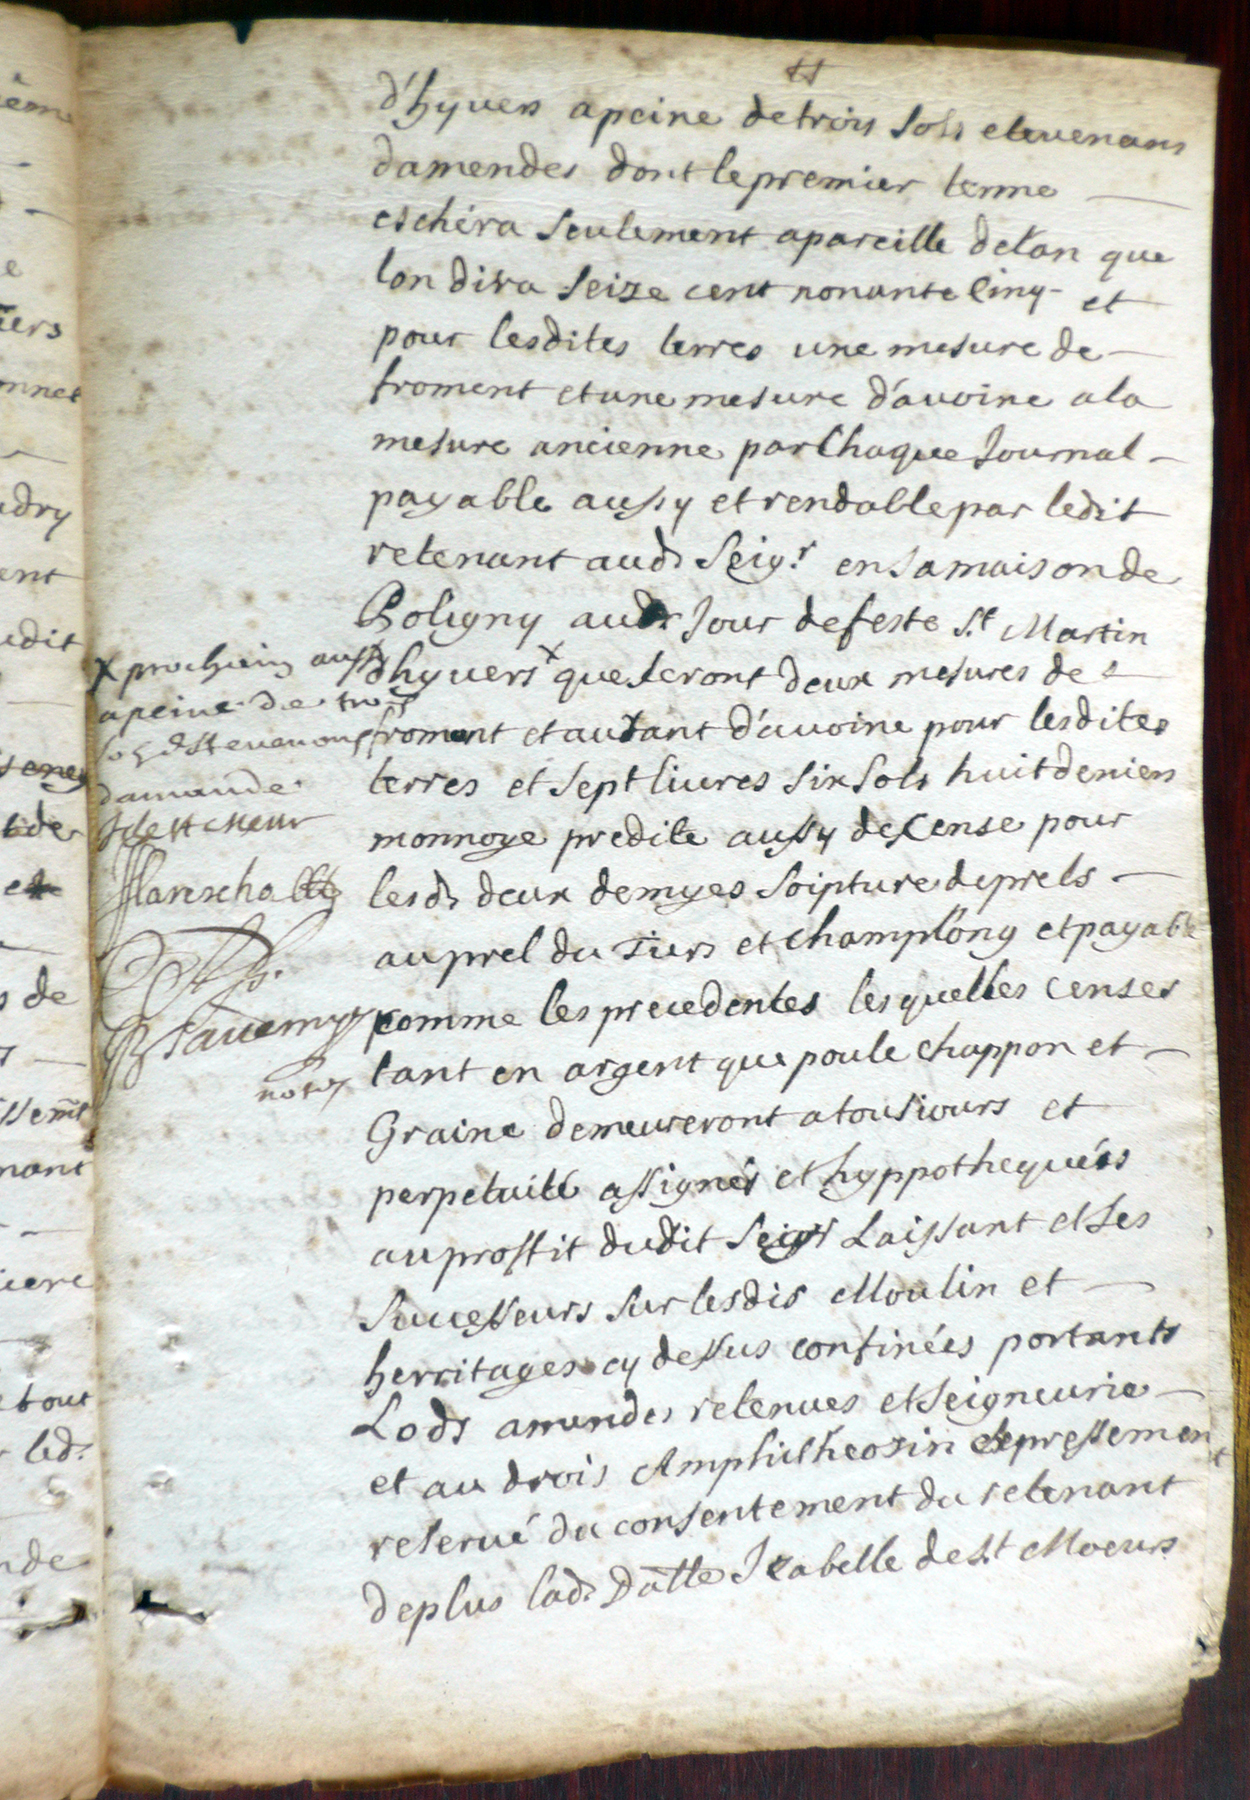 d'hyvers a peine de trois sols estevenans
damendes dont le premier terme
eschera seulement a pareille de lan que
lon dira seize cent nonante cinq et
pour lesdites terres une mesure de
froment et une mesure d'avoine a la
mesure ancienne par chaque journal
payable aussy et rendable par ledit
retenant aud. Seigr. en sa maison de
Poligny aud. jour de feste St. Martin
d'hyvers x que seront deux mesures de
froment et autant d'avoine pour lesdites
terres et sept livres six sols huit deniers
monnoye predite aussy de cense pour
lesd. deux demyes soipture de prels
au prel du Tiers et Champlong et payable
comme les precedentes lesquelles censes
tant en argent que poule chappon et
Graine demeureront a tousiours et
perpetuité assignés et hyppothequées
au proffit dudit Seigr Laissant et ses
successeurs sur lesdis Moulin et
herritages cy dessus confinées portants
Lods amendes retenues et seigneurie
et au drois Amphitheosin expressement
reservé du consentement du retenant
de plus lad. Datte Izabelle de St Moeurs
x prochain aussy
a peine de trois
sols estevenons
damande
I de St Meur
Mareschal
notr